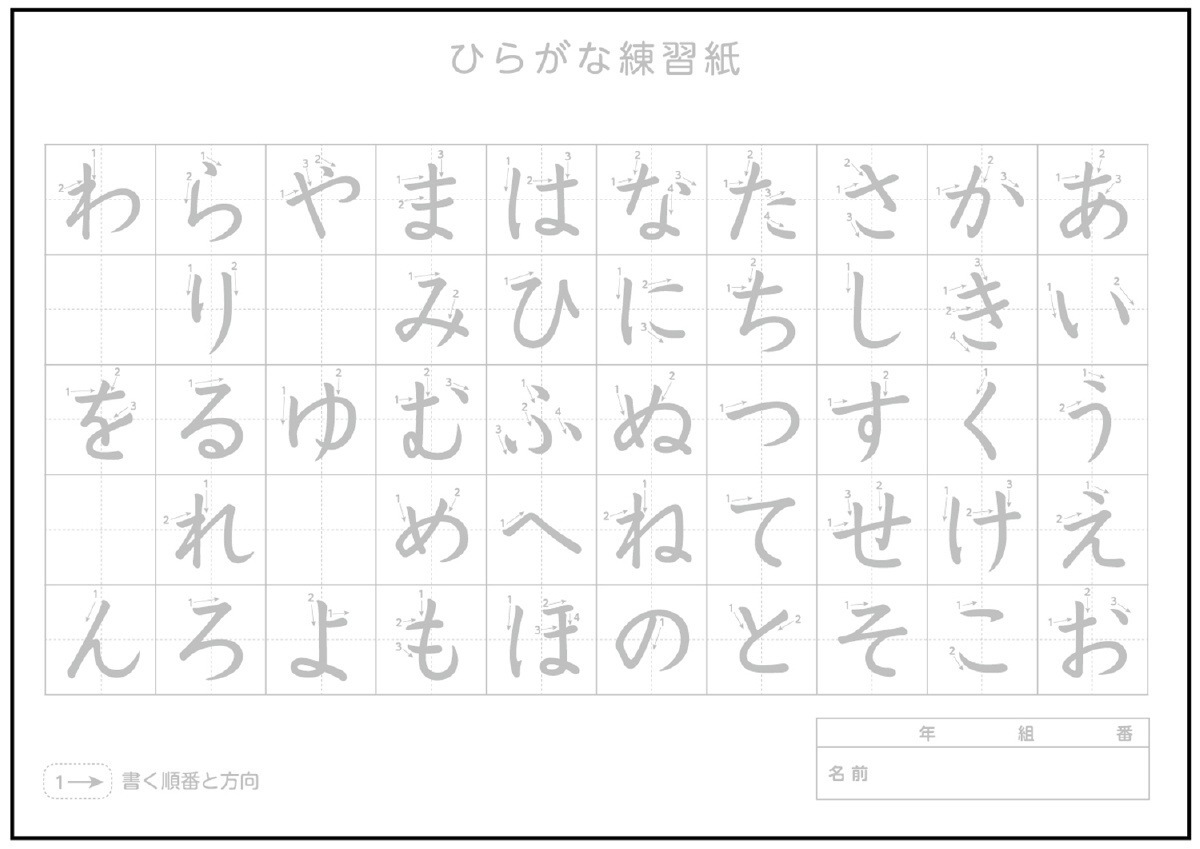 ひらがな練習紙
わ ら や ま は な た さ か あ
り み ひ に ち し き い
を る ゆ む ふ ぬ つ す く う
れ め へ ね て せ け え
ん ろ よ も ほ の と そ こ お
年 組 番
名前
1→ 書く順番と方向